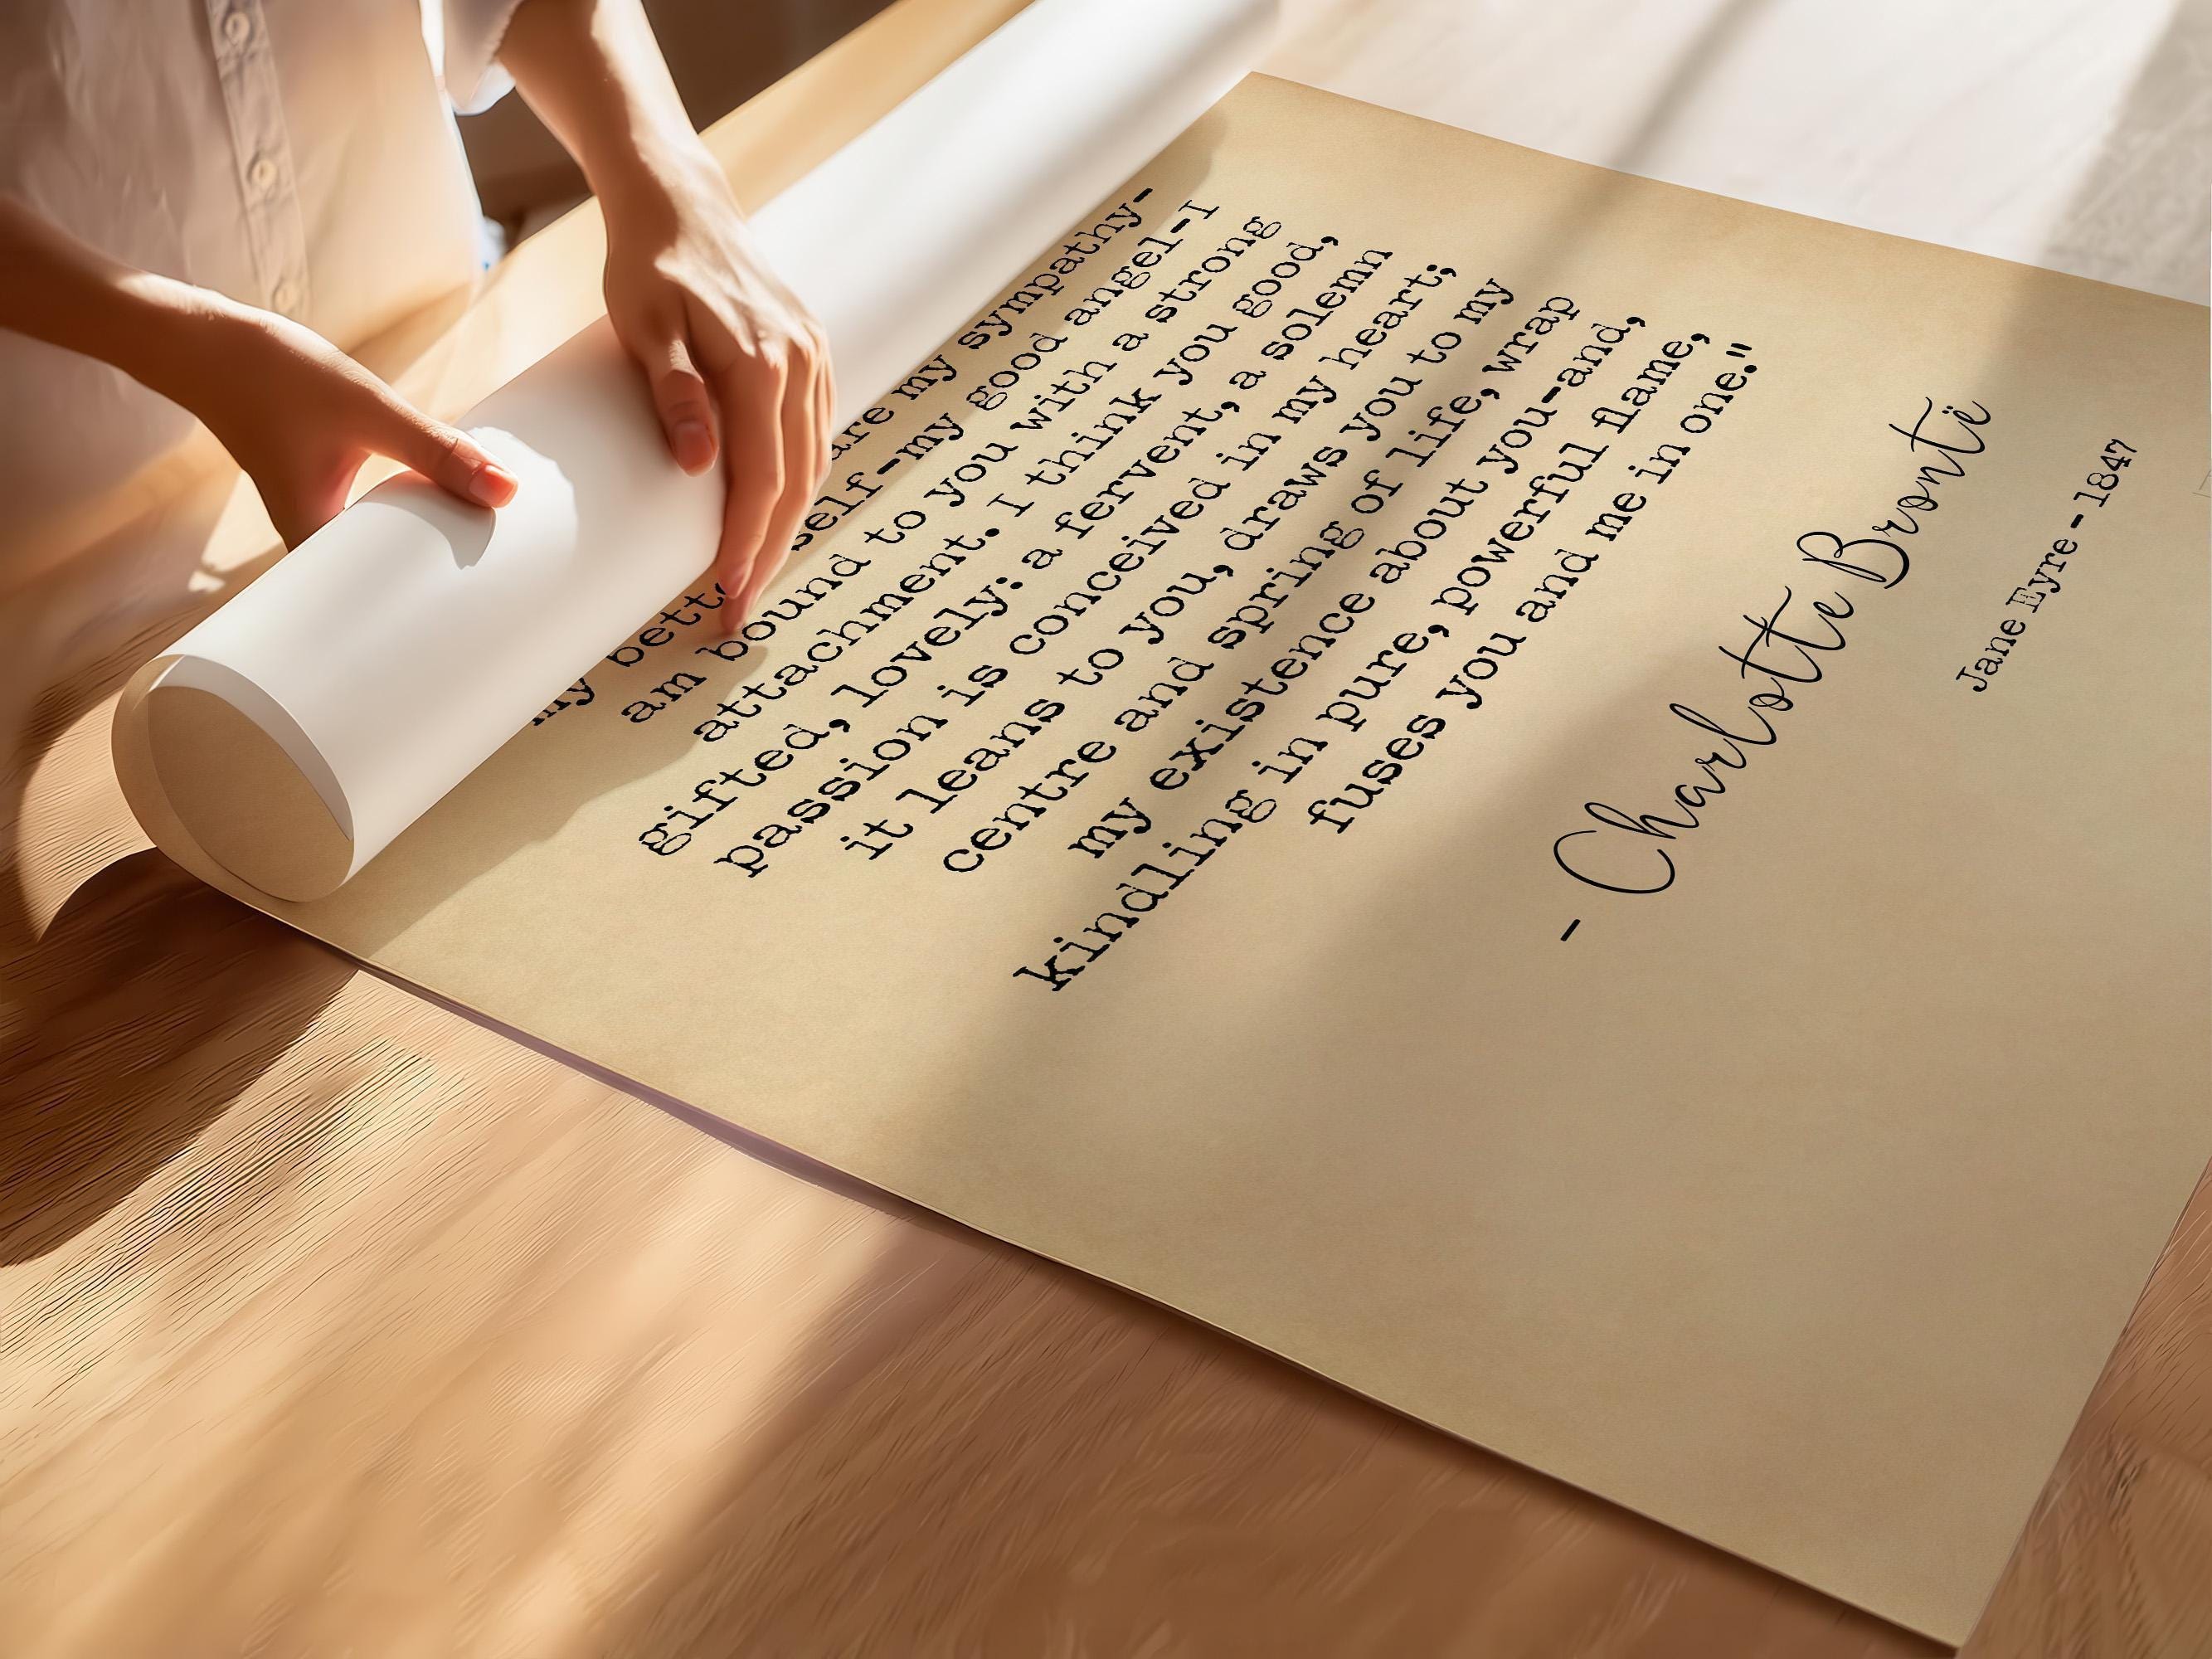 are my sympathy-
my better self-my good angel-I
am bound to you with a strong
attachment. I think you good,
gifted, lovely: a fervent, a solemn
passion is conceived in my heart;
it leans to you, draws you to my
centre and spring of life, wrap
my existence about you-and,
kindling in pure, powerful flame,
fuses you and me in one."
- Charlotte Brontë
Jane Eyre - 1847